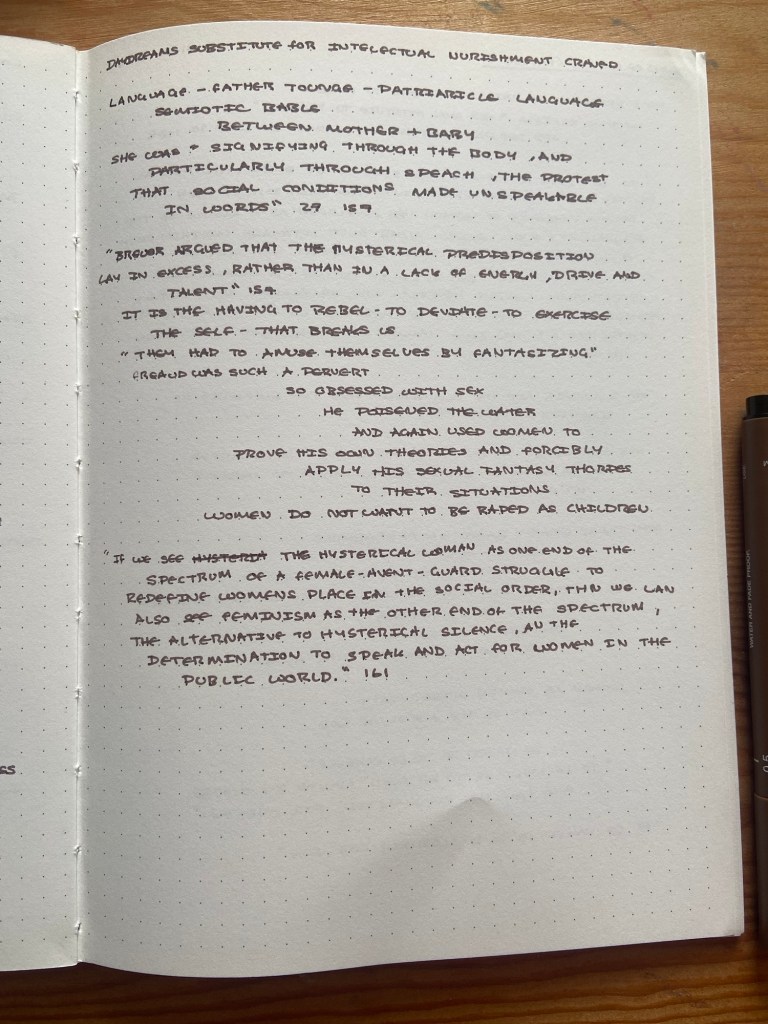 DAYDREAMS SUBSTITUTE FOR INTELECTUAL NURISHMENT CRAVED
LANGUAGE - FATHER TOUNGE - PATRIARICLE LANGUAGE
SEMIOTIC BABLE
BETWEEN MOTHER + BABY
SHE WAS " SIGNIFYING THROUGH THE BODY, AND
PARTICULARLY THROUGH SPEACH, THE PROTEST
THAT SOCIAL CONDITIONS MADE UNSPEAKABLE
IN WORDS" 29 159
"BREUER ARGUED THAT THE HYSTERICAL PREDISPOSITION
LAY IN EXCESS, RATHER THAN IN A LACK OF ENERGY, DRIVE AND
TALENT" 159
IT IS THE HAVING TO REBEL - TO DEVIATE - TO EXERCISE
THE SELF - THAT BREAKS US
"THEY HAD TO AMUSE THEMSELVES BY FANTASIZING"
FREAUD WAS SUCH A PERVERT
SO OBSESSED WITH SEX
HE POISENED THE WATER
AND AGAIN USED WOMEN TO
PROVE HIS OWN THEORIES AND FORCIBLY
APPLY HIS SEXUAL FANTASY THORIES
TO THEIR SITUATIONS
WOMEN DO NOT WANT TO BE RAPED AS CHILDREN
"IF WE SEE HYSTERIA THE HYSTERICAL WOMAN AS ONE END OF THE
SPECTRUM OF A FEMALE-AVENT-GUARD STRUGGLE TO
REDEFINE WOMENS PLACE IN THE SOCIAL ORDER, THN WE CAN
ALSO SEE FEMINISM AS THE OTHER END OF THE SPECTRUM,
THE ALTERNATIVE TO HYSTERICAL SILENCE, AN THE
DETERMINATION TO SPEAK AND ACT FOR WOMEN IN THE
PUBLIC WORLD." 161
SS
WATER AND FADE PROOF
0.5